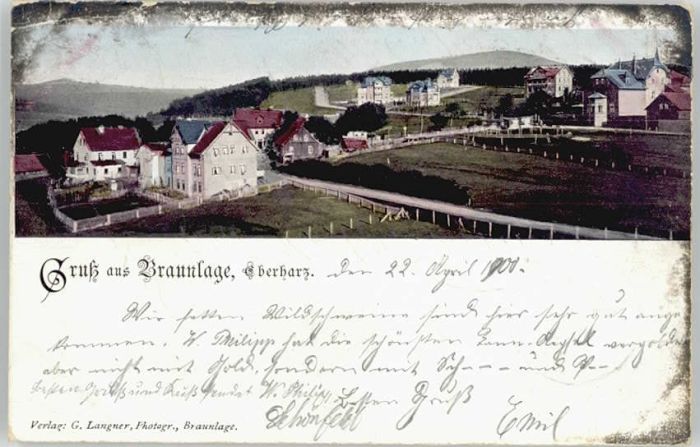 Gruß aus Braunlage, Oberharz. Den 22. April 1900.
Wir fetten Wildschweine sind hier sehr gut ange
kommen. W. Philipp hat die schönsten vergoldet
aber nicht mit Gold, sondern mit Sch--- und P--
besten Gruß und Kuß sendet W. Philipp, Besten Gruß
Schönfeld Emil
Verlag: G. Langner, Photogr., Braunlage.